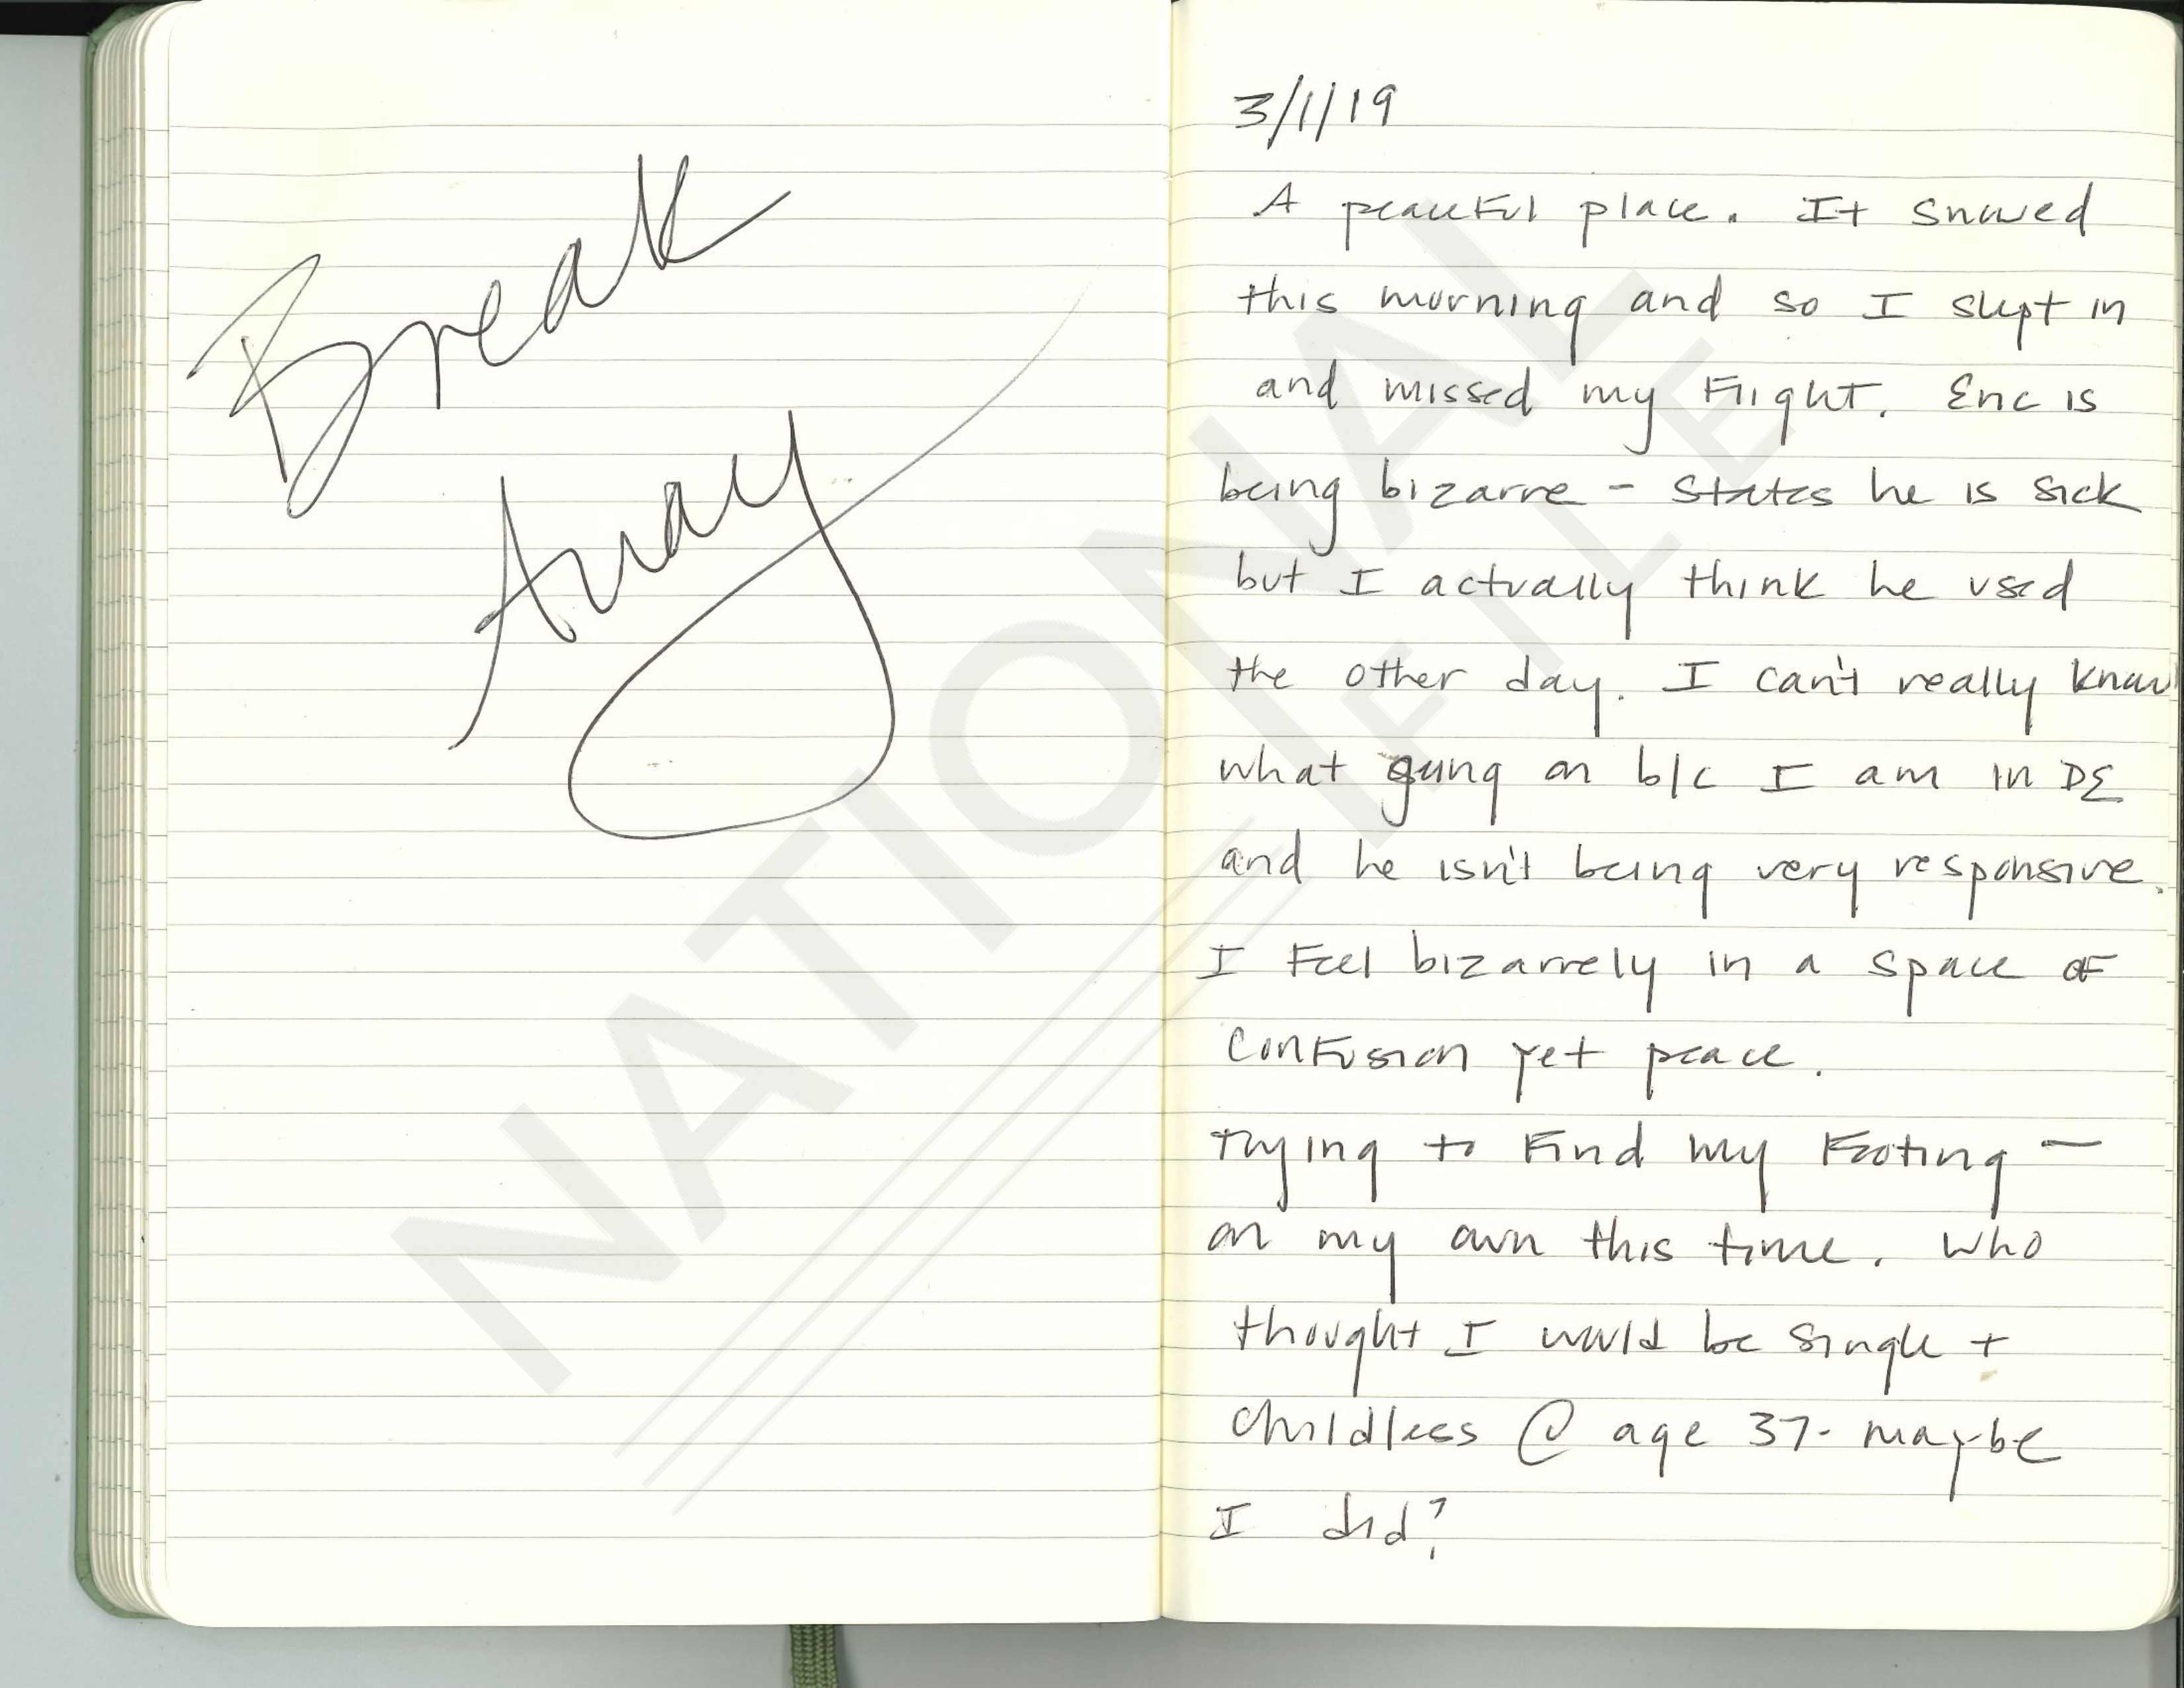 Break
Away
3/1/19
A peaceful place. It snowed
this morning and so I slept in
and missed my flight. Eric is
being bizarre - states he is sick
but I actually think he used
the other day. I can't really know
what going on b/c I am in DE
and he isn't being very responsive.
I feel bizarrely in a space of
confusion yet peace.
Trying to find my footing —
on my own this time. Who
thought I would be single +
childless @ age 37- maybe
I did?
NATIONAL
FILE